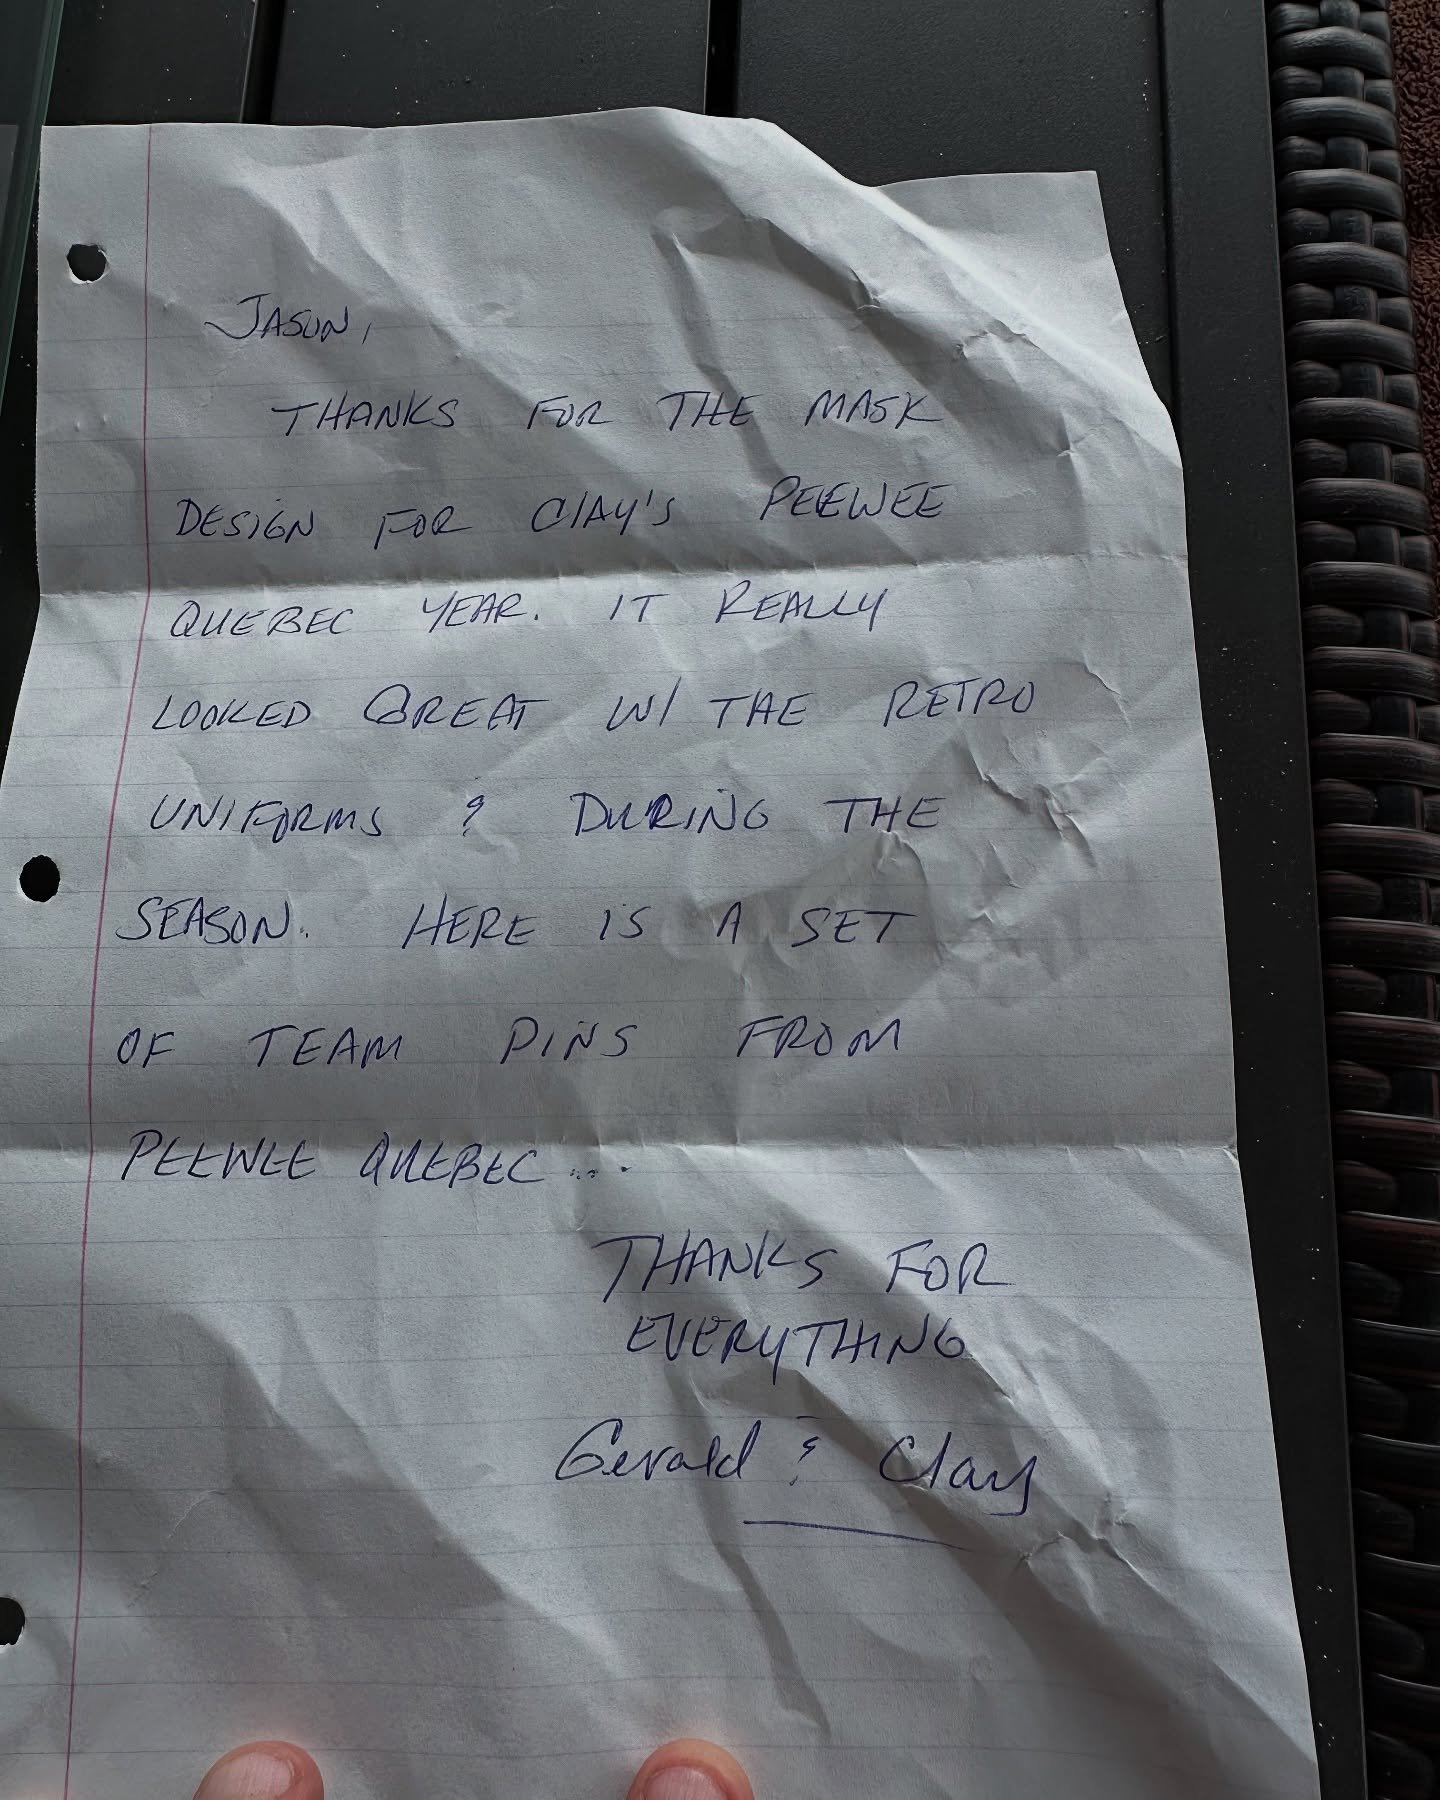 JASON,
THANKS FOR THE MASK
DESIGN FOR ClAY'S PEEWEE
QUEBEC YEAR. IT REALLY
LOOKED GREAT W/ THE RETRO
UNIFORMS & DURING THE
SEASON. HERE IS A SET
OF TEAM PINS FROM
PEEWEE QUEBEC...
THANKS FOR
EVERYTHING
Gerald & Clay